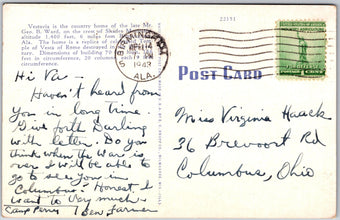 Vestavia is the country home of the late Mr.
Geo. B. Ward, on the crest of Shades
altitude 1,000 feet, 6 miles from
Ala. The home is a replica of
ple of Vesta of Rome
sion. Dimensions of building
feet in circumference, 20 columns
in circumference.
22151
BIRMINGHAM
1943
ALA.
POST CARD
1 CENT 1
Hi Vir -
Haven't heard from
you in long time.
Give forth Darling
with letter. Do you
think when the War is
over I will be able to
go to see you in
Columbus. Honest, I
want to very much.
Ben Farmer
Miss Virginia Haack
36 Brevoort Rd
Columbus, Ohio